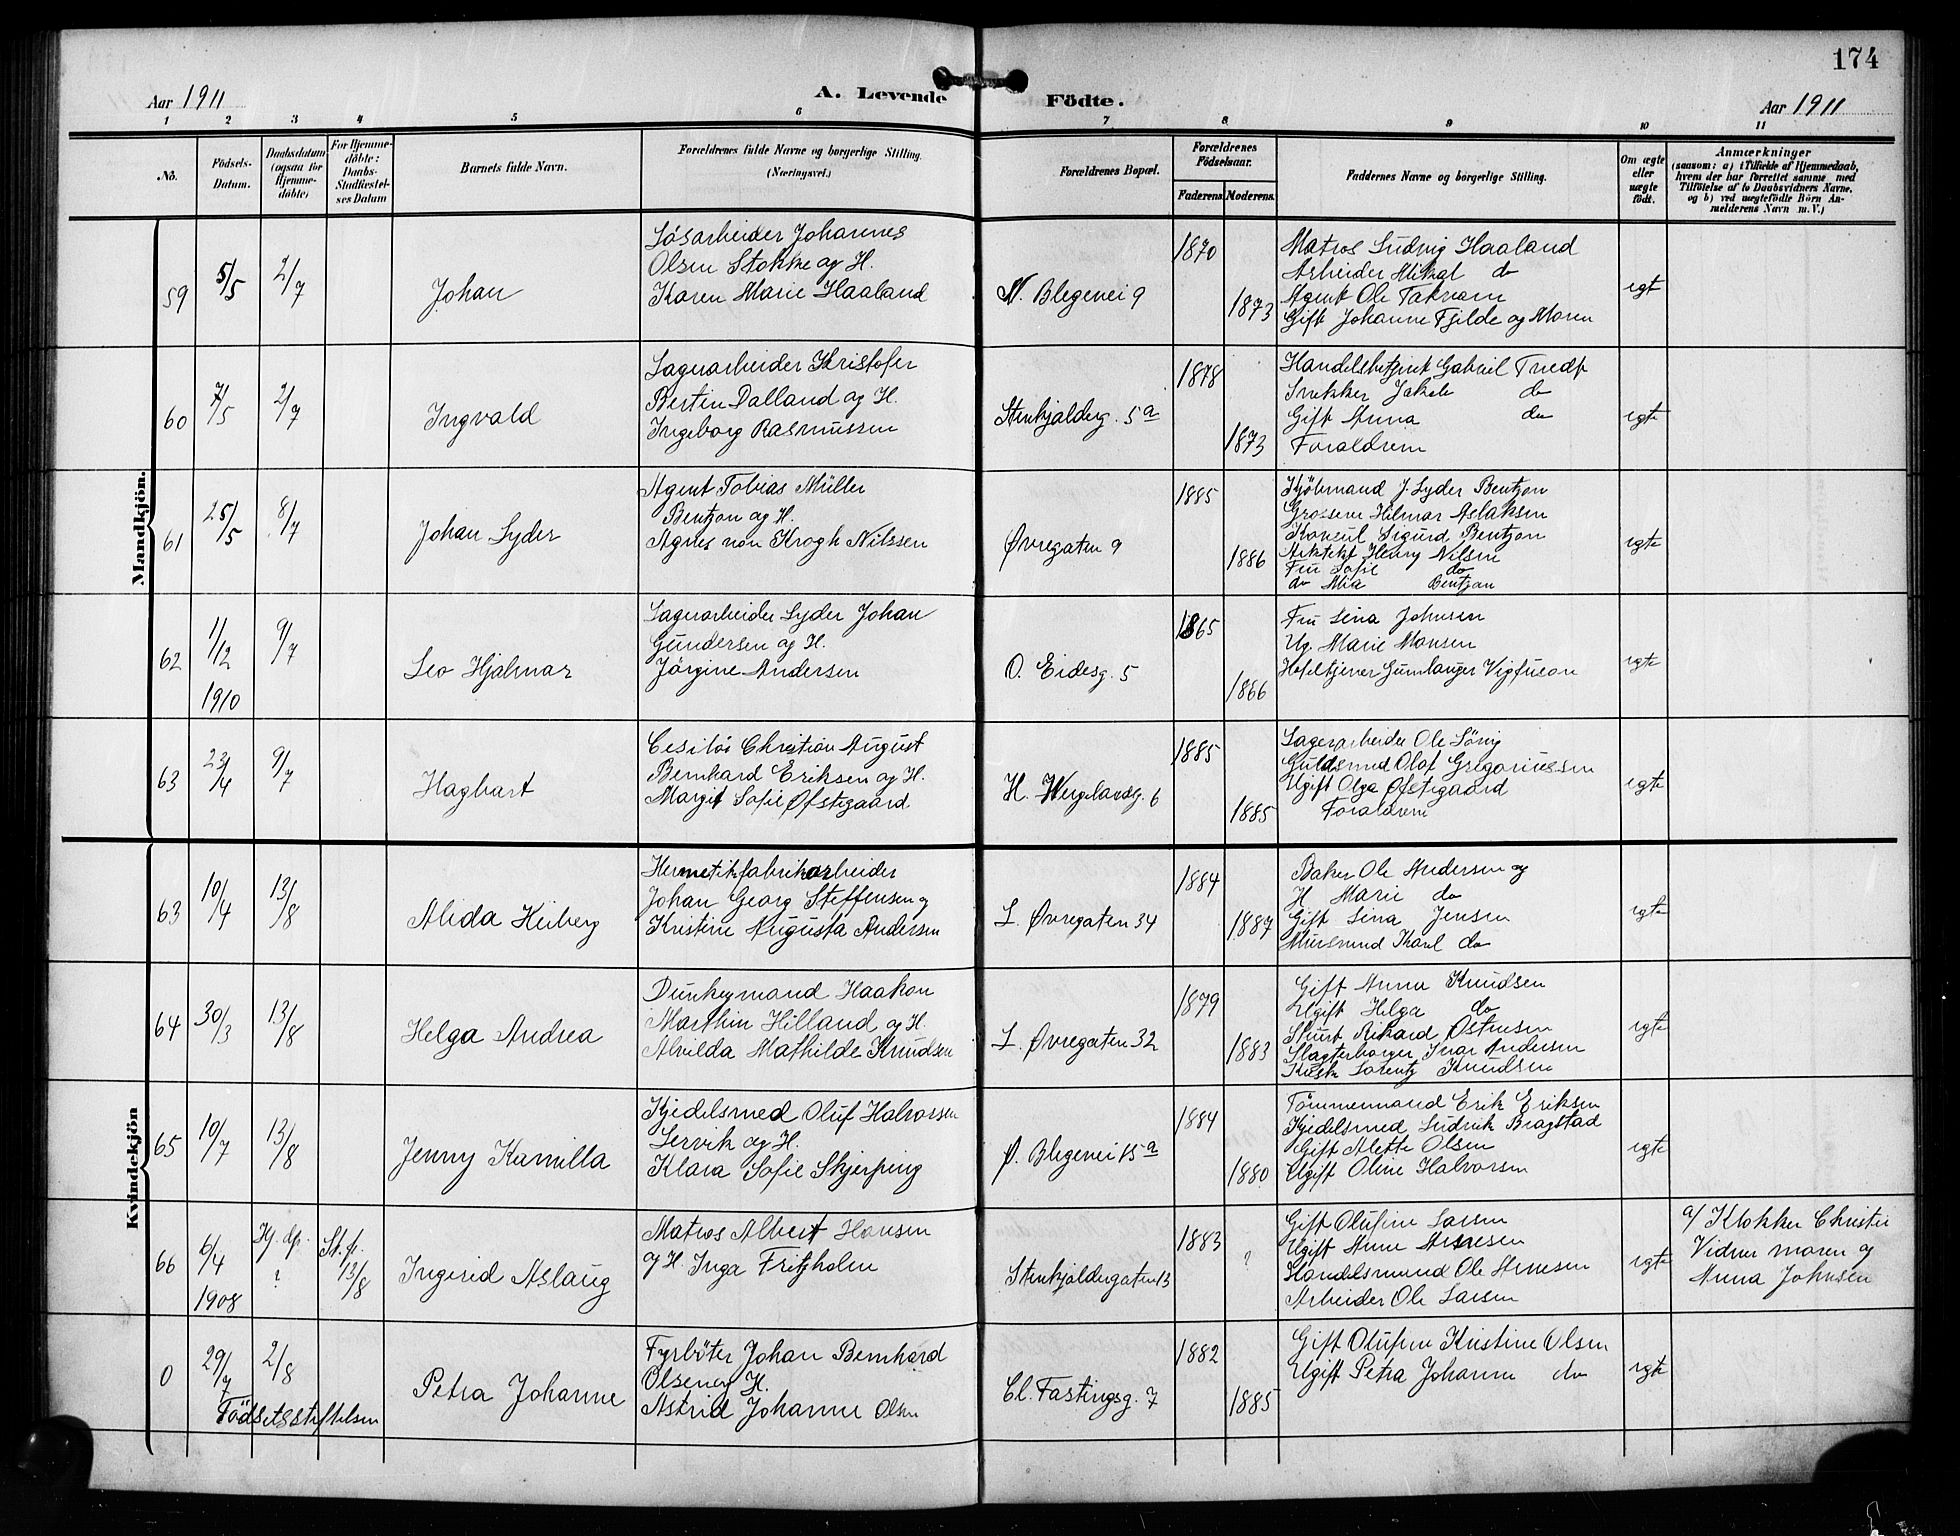 174
Aar 1911
A. Levende Födte.
Aar 1911
1 2 3 4 5 6 7 8 9 10 11
No.
Födsels-
Datum.
Daabsdatum
(ogsaa for
Hjemme-
döbte)
For Hjemme-
döbte:
Daabs-
Stadfæstel-
ses Datum
Barnets fulde Navn.
Forældrenes fulde Navne og borgerlige Stilling.
(Næringsvei.)
Forældrenes Bopæl.
Forældrenes
Födselsaar.
Faderens. Moderens.
Faddernes Navne og borgerlige Stilling.
Om ægte
eller
uægte
födt.
Anmærkninger
(saasom: a) i Tilfælde af Hjemmedaab,
hvem der har forrettet samme med
Tilföielse af to Daabsvidners Navne,
og b) ved uægtefödte Börn An-
melderens Navn m. V.)
Mandkjön.
59
5/5
2/7
Johan
Lösarbeider Johannes
Olsen Stokke og H.
Karen Marie Haaland
N. Blegevei 9
1870
1873
Matros Ludvig Haaland
Arbeider Mikal do
Agent Ole Taknæm
Gift Johanne Fjelde og Maren
egt
60
7/5
2/7
Ingvald
Lagerarbeider Kristofer
Bertin Dalland og H.
Ingeborg Rasmussen
Stenkjelderg. 5a
1878
1873
Handelsbetjent Gabriel
Snekker Jakob do
Gift Anna do
Forældrene
egte
61
25/5
8/7
Johan Lyder
Agent Tobias Müller
Bentzon og H.
Agnes von Krogh Nilssen
Øvregaten 9
1885
1886
Kjöbmand J. Lyder Bentzon
Grosserer Hilmar Aslaksen
Konsul Sigurd Bentzon
Arkitekt Henry Nilsen
Fru Sofie do
do Mia Bentzon
egte
62
1/12
1910
9/7
Leo Hjalmar
Lagerarbeider Lyder Johan
Gundersen og H.
Jörgine Andersen
O. Eidesg. 5
1865
1866
Fru Lina Johnsen
Ug. Marie Monsen
Hoteltjener Gunlauger Vigfuson
egte
63
23/4
9/7
Hagbart
Christian August
Bernhard Eriksen og H.
Margit Sofie Øfstegaard
H. Wergelandsg. 6
1885
1885
Lagerarbeider Ole Sörig
Guldsmed Olaf Gregoriussen
Ugift Olga Øfstegaard
Forældrene
egte
Kvindekjön
63
10/4
13/8
Alida Kiiberg
Hermetikfabrikarbeider
Johan Georg Steffensen og
Kristine Augusta Andersen
L. Øvregaten 34
1884
1887
Baker Ole Andersen og
H Marie do
Gift Lina Jensen
Mursvend Karl do
egte
64
30/3
13/8
Helga Andrea
Dunkeymand Haakon
Marthin Hilland og H.
Alvilda Mathilde Knudsen
L. Øvregaten 32
1879
1883
Gift Anna Knudsen
Ugift Helga do
Rikard Østensen
Ivar Andersen
Kusk Lorentz Knudsen
egte
65
10/7
13/8
Jenny Kamilla
Kjedelsmed Oluf Halvorsen
Lervik og H.
Klara Sofie Skjerping
Ø. Blegevei 15a
1884
1880
Tömmermand Erik Eriksen
Kjedelsmed Ludvik Bragstad
Gift Alette Olsen
Ugift Oline Halvorsen
egte
66
6/4
1908
Hj. dp.
?
St. f.
13/8
Ingerid Aslaug
Matros Albert Hansen
og H. Inga Fritzholm
Stenkjeldergaten 13
1883
?
Gift Olufine Larsen
Ugift Anne Arnesen
Handelsmand Ole Arnesen
Arbeider Ole Larsen
egte
a/ Klokker Christie
Vidner moren og
Anna Johnsen
0
29/7
2/8
Födselsstiftelsen
Petra Johanne
Fyrböter Johan Bernhard
Olsen og H.
Astrid Johanne Olsen
Cl. Fastingsg. 7
1882
1885
Gift Olufine Kristine Olsen
Ugift Petra Johanne do
egte